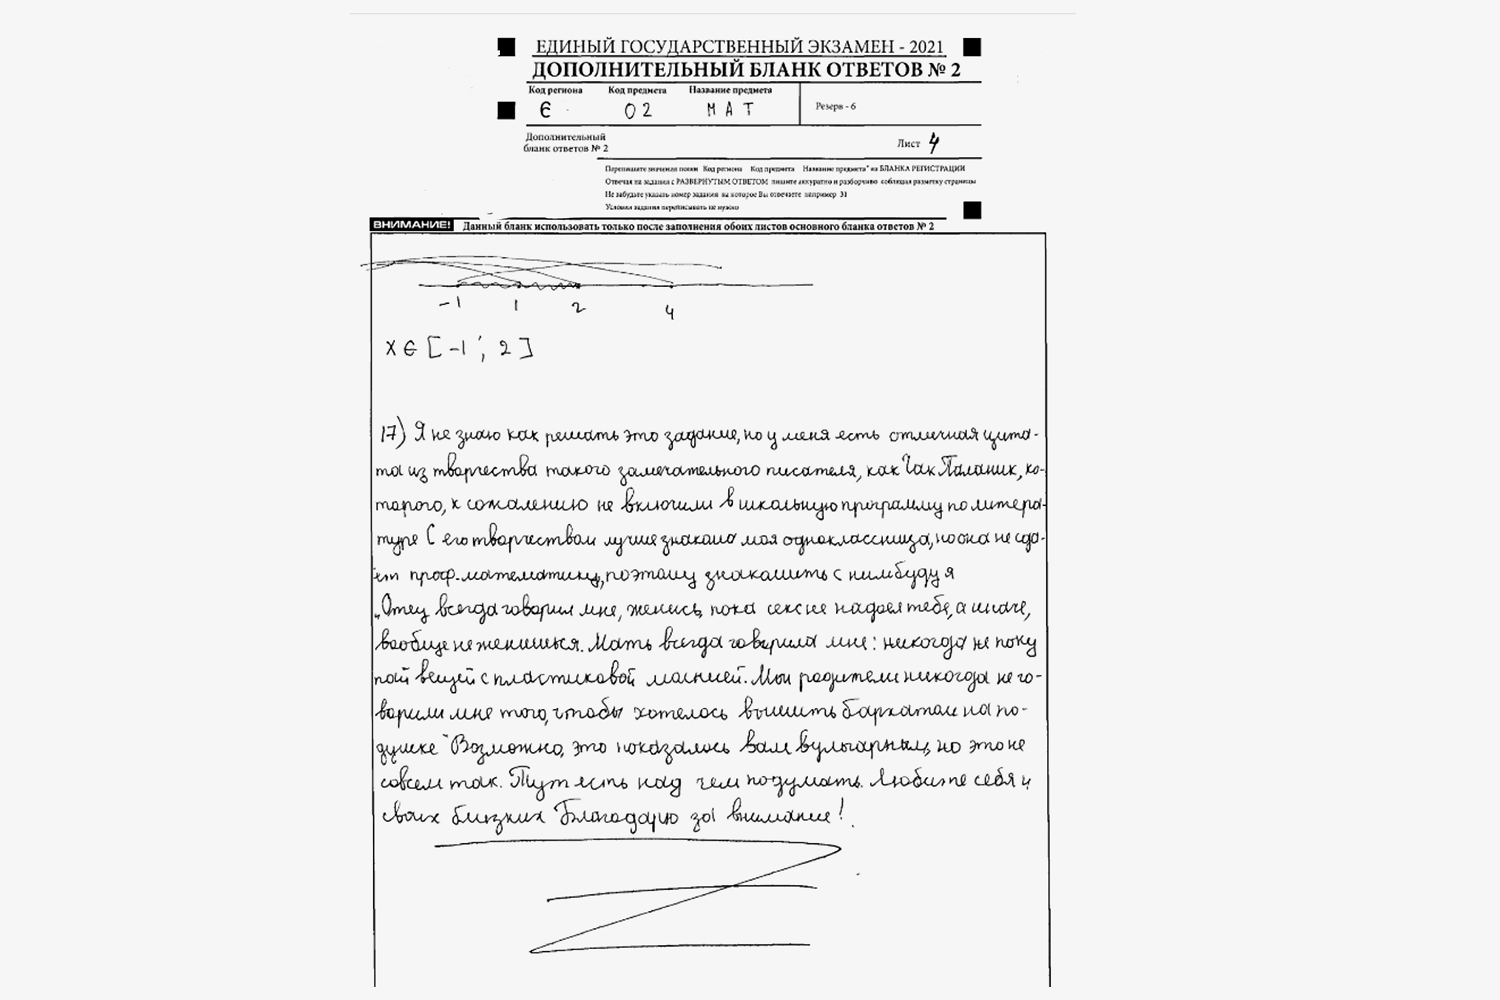 ЕДИНЫЙ ГОСУДАРСТВЕННЫЙ ЭКЗАМЕН - 2021
ДОПОЛНИТЕЛЬНЫЙ БЛАНК ОТВЕТОВ № 2
Код региона Код предмета Название предмета
Є 02 МАТ
Резерв - 6
Дополнительный
бланк ответов № 2
Лист 4
Перепишите значения полей Код региона Код предмета Название предмета" из БЛАНКА РЕГИСТРАЦИИ
Отвечая на задания с РАЗВЕРНУТЫМ ОТВЕТОМ пишите аккуратно и разборчиво соблюдая разметку страницы
Не забудьте указать номер задания на которое Вы отвечаете например 31
Условия задания переписывать не нужно
ВНИМАНИЕ! Данный бланк использовать только после заполнения обоих листов основного бланка ответов № 2
-1 1 2 4
x ∈ [-1; 2]
17) Я не знаю как решать это задание, но у меня есть отличная цита-
та из творчества такого замечательного писателя, как Чак Паланик, ко-
торого, к сожалению не включили в школьную программу по литера-
туре С его творчеством лучше знакома моя одноклассница, но она не сда-
ёт проф. математику, поэтому знакомить с ним буду я
„Отец всегда говорил мне, женись, пока секс не надоел тебе, а иначе,
вообще не женишься. Мать всегда говорила мне: никогда не поку
пай вещей с пластиковой молнией. Мои родители никогда не го-
ворили мне того, чтобы хотелось вышить бархатом на по-
душке" Возможно, это показалось вам вульгарным, но это не
совсем так. Тут есть над чем подумать. Любите себя и
своих близких Благодарю за внимание!